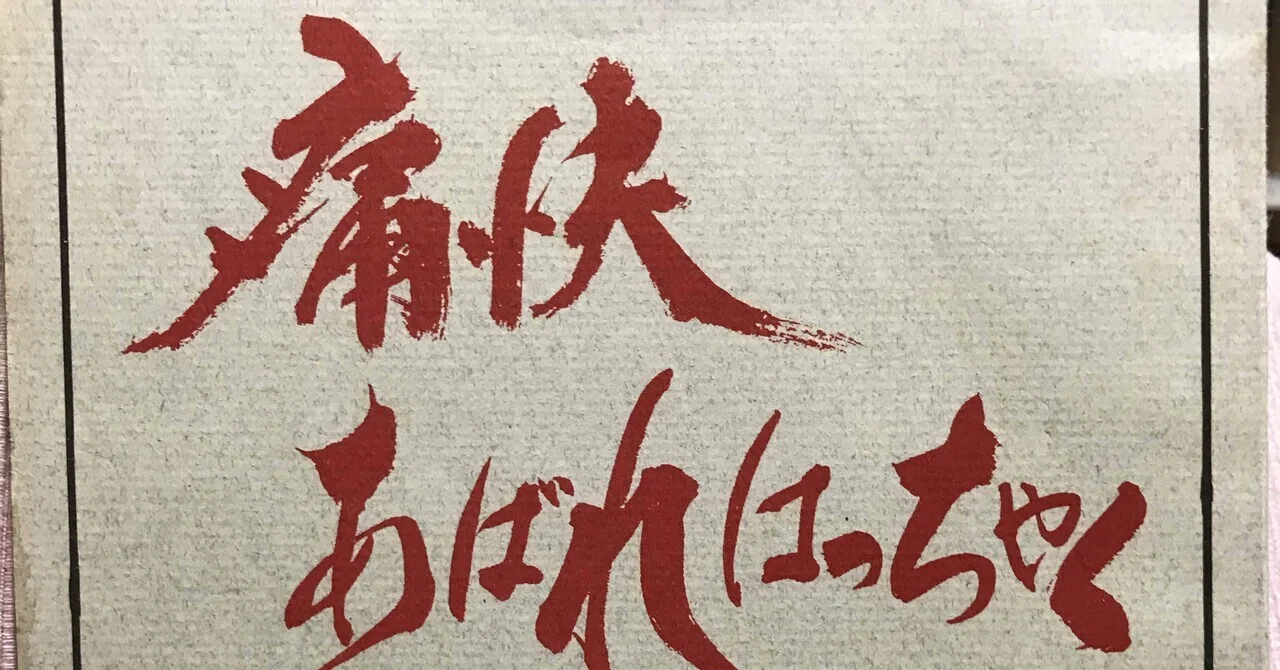 痛快
あばれはっちゃく